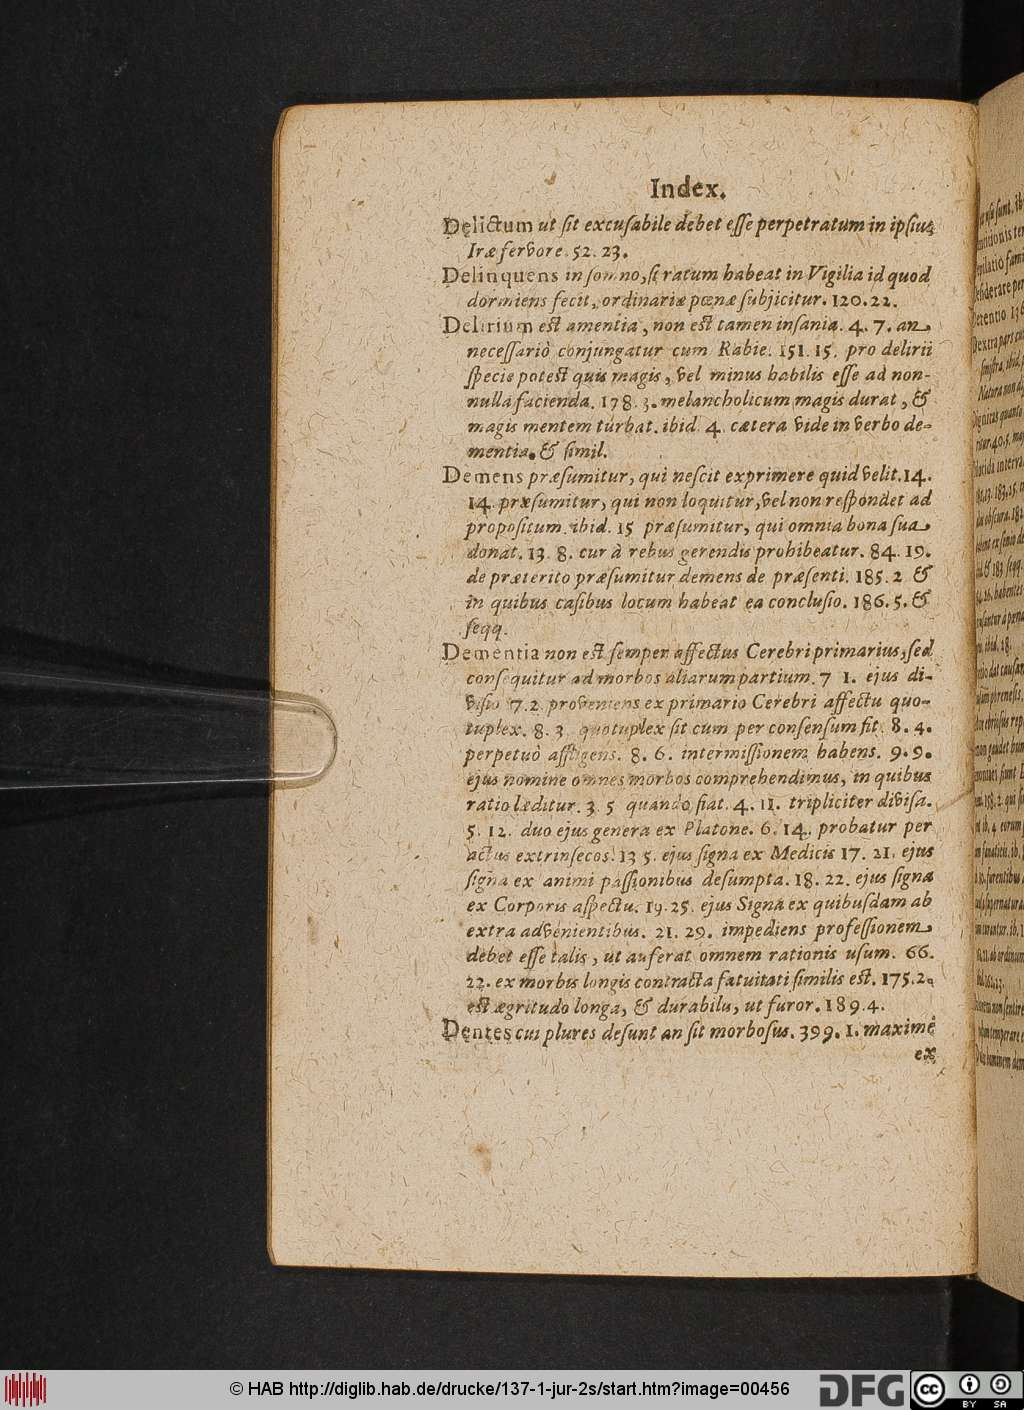 Index.
Delictum ut ſit excuſabile debet eſſe perpetratum in ipſius
Iræ fervore. 52. 23.
Delinquens in ſomno, ſi ratum habeat in Vigilia id quod
dormiens fecit, ordinariæ pœnæ ſubjicitur. 120. 22.
Delirium est amentia, non est tamen inſania. 4. 7. an
neceſſariò conjungatur cum Rabie. 151. 15. pro delirii
ſpecie potest quis magis, vel minus habilis eſſe ad non-
nulla facienda. 178. 3. melancholicum magis durat, &
magis mentem turbat. ibid. 4. cætera vide in verbo de-
mentia. & ſimil.
Demens præſumitur, qui neſcit exprimere quid velit. 14.
14. præſumitur, qui non loquitur, vel non reſpondet ad
propoſitum. ibid. 15 præſumitur, qui omnia bona ſua
donat. 13. 8. cur à rebus gerendis prohibeatur. 84. 19.
de præterito præſumitur demens de præſenti. 185. 2 &
in quibus caſibus locum habeat ea concluſio. 186. 5. &
ſeqq.
Dementia non est ſemper affectus Cerebri primarius, ſed
conſequitur ad morbos aliarum partium. 7 1. ejus di-
viſio 7. 2. proveniens ex primario Cerebri affectu quo-
tuplex. 8. 3 quotuplex ſit cum per conſenſum fit. 8. 4.
perpetuò affligens. 8. 6. intermiſſionem habens. 9. 9.
ejus nomine omnes morbos comprehendimus, in quibus
ratio læditur. 3. 5 quando fiat. 4. 11. tripliciter diviſa.
5. 12. duo ejus genera ex Platone. 6. 14. probatur per
actus extrinſecos. 13 5. ejus ſigna ex Medicis 17. 21. ejus
ſigna ex animi paſſionibus deſumpta. 18. 22. ejus ſigna
ex Corporis aſpectu. 19. 25. ejus Signa ex quibuſdam ab
extra advenientibus. 21. 29. impediens profeſſionem
debet eſſe talis, ut auferat omnem rationis uſum. 66.
22. ex morbis longis contracta fatuitati ſimilis est. 175. 2.
est ægritudo longa, & durabilis, ut furor. 189. 4.
Dentes cui plures deſunt an ſit morboſus. 399. 1. maximè
ex
© HAB http://diglib.hab.de/drucke/137-1-jur-2s/start.htm?image=00456
DFG
cc
BY SA